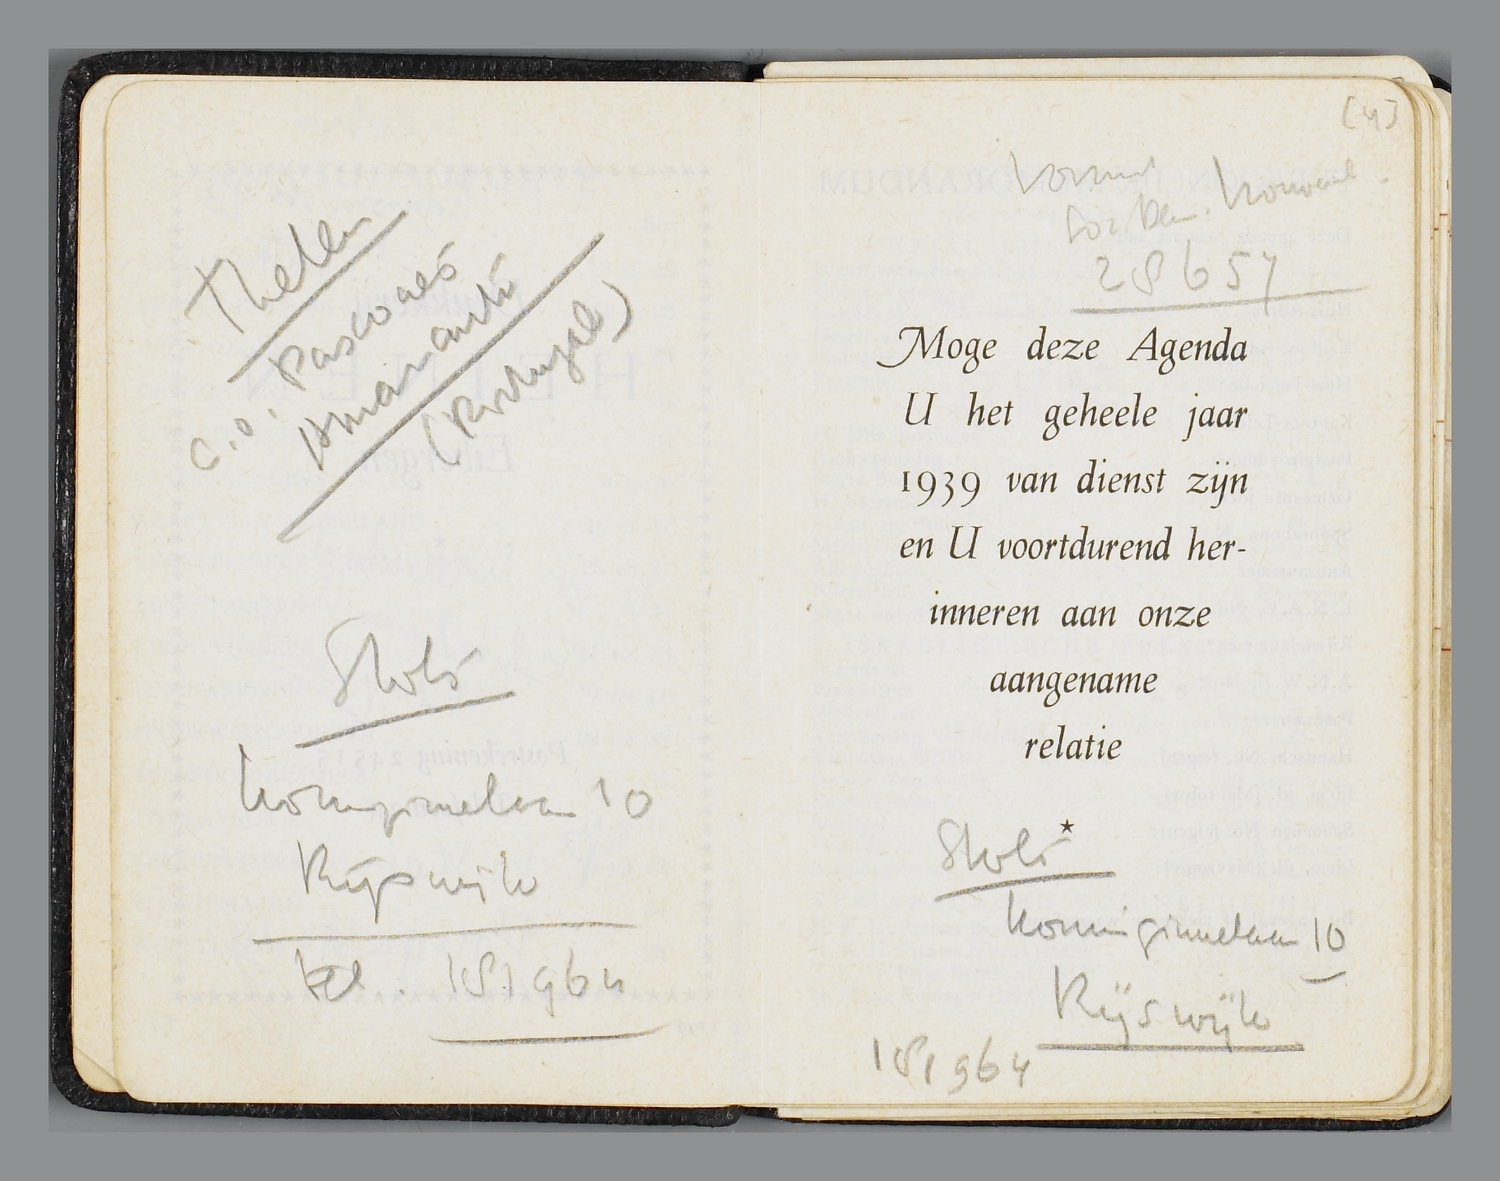 Thelen
c.o. Pascoaes
Amarante
(Portugal)
Stols
Koninginnelaan 10
Rijswijk
tel. 181964
[4]
28657
Moge deze Agenda
U het geheele jaar
1939 van dienst zijn
en U voortdurend her-
inneren aan onze
aangename
relatie
Stols
Koninginnelaan 10
Rijswijk
181964